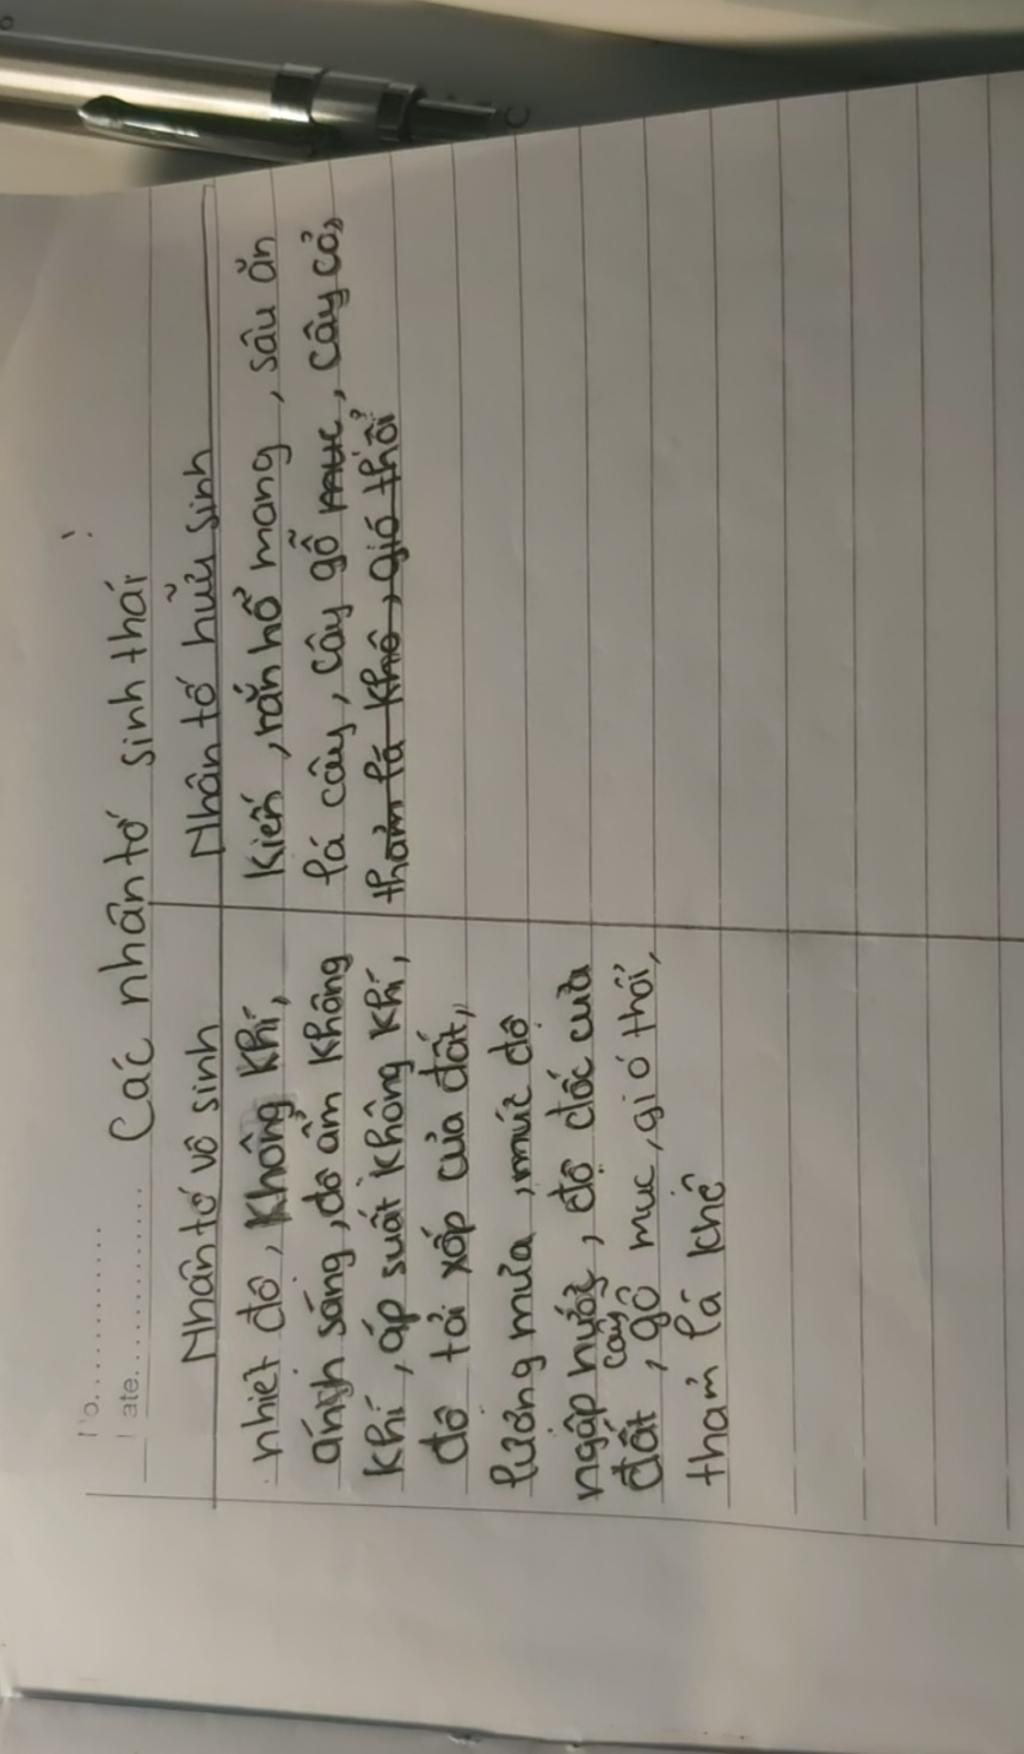 No..........
Date..........
Các nhân tố sinh thái
Nhân tố vô sinh
nhiệt độ, không khí,
ánh sáng, độ ẩm không
khí, áp suất không khí,
độ tơi xốp của đất,
lượng mưa, mức độ
ngập nước, độ dốc của
đất, cây gỗ mục, gió thổi,
thảm lá khô
Nhân tố hữu sinh
Kiến, rắn hổ mang, sâu ăn
lá cây, cây gỗ mục, cây cỏ,
thảm lá khô, gió thổi